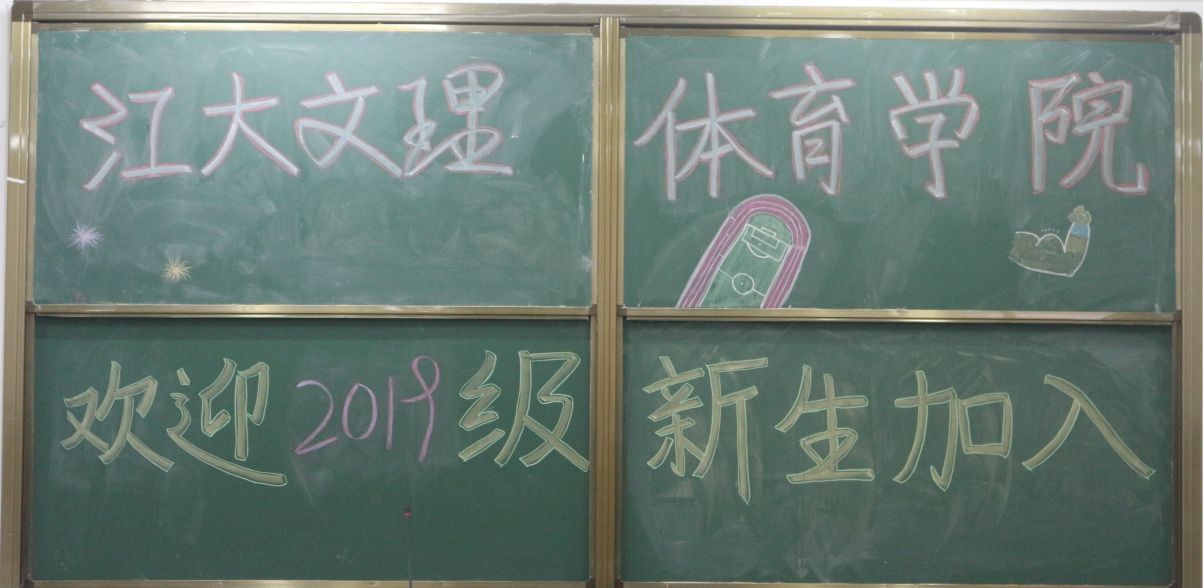 江大文理 体育学院
欢迎2019级 新生加入